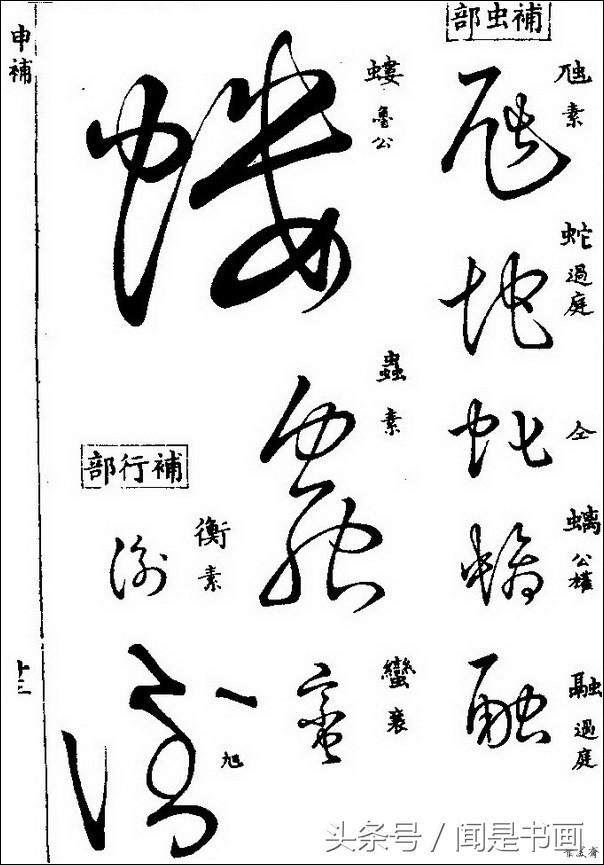 補虫部
虺 素
蛇 過庭
仝
螭 公權
融 過庭
螻 魯公
蟲 素
蠻 襄
補行部
衡 素
旭
申補
十三
头条号 / 闻是书画